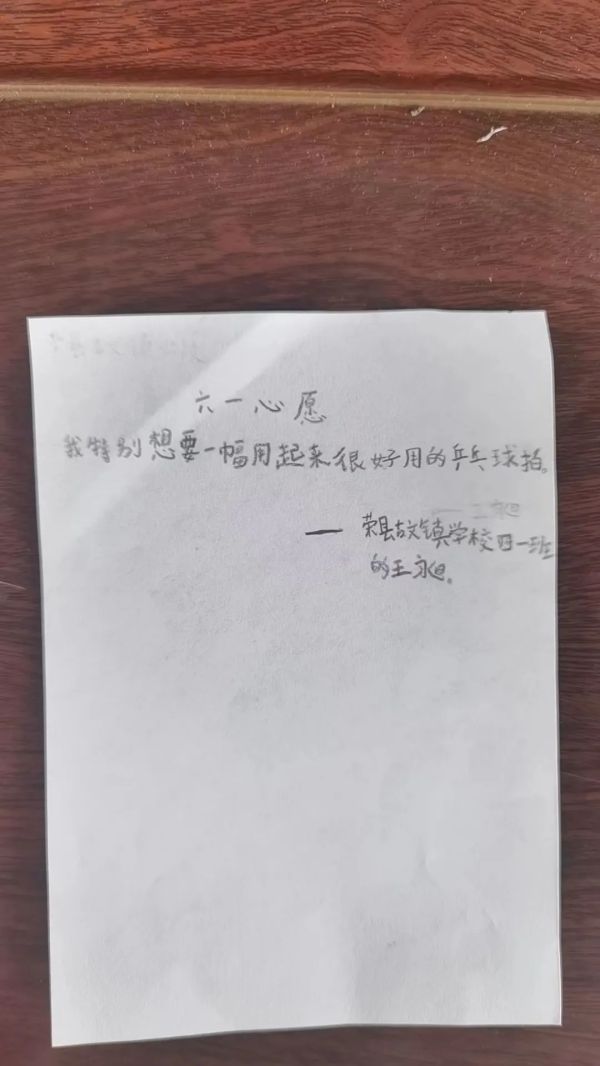 六一心愿
我特别想要一幅用起来很好用的乒乓球拍。
— 荣县古文镇学校四一班
的王昶。